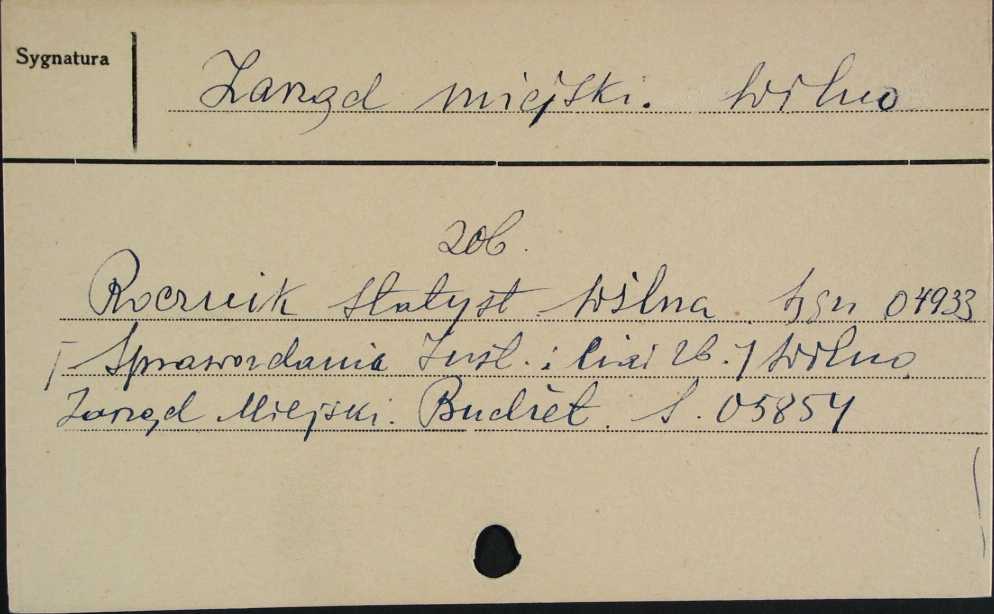 Sygnatura
Zarząd miejski. Wilno
zob.
Rocznik Statyst Wilna. Sygn 04933
[Sprawozdania Inst. i
] Wilno
Zarząd Miejski. Budżet. S. 05854